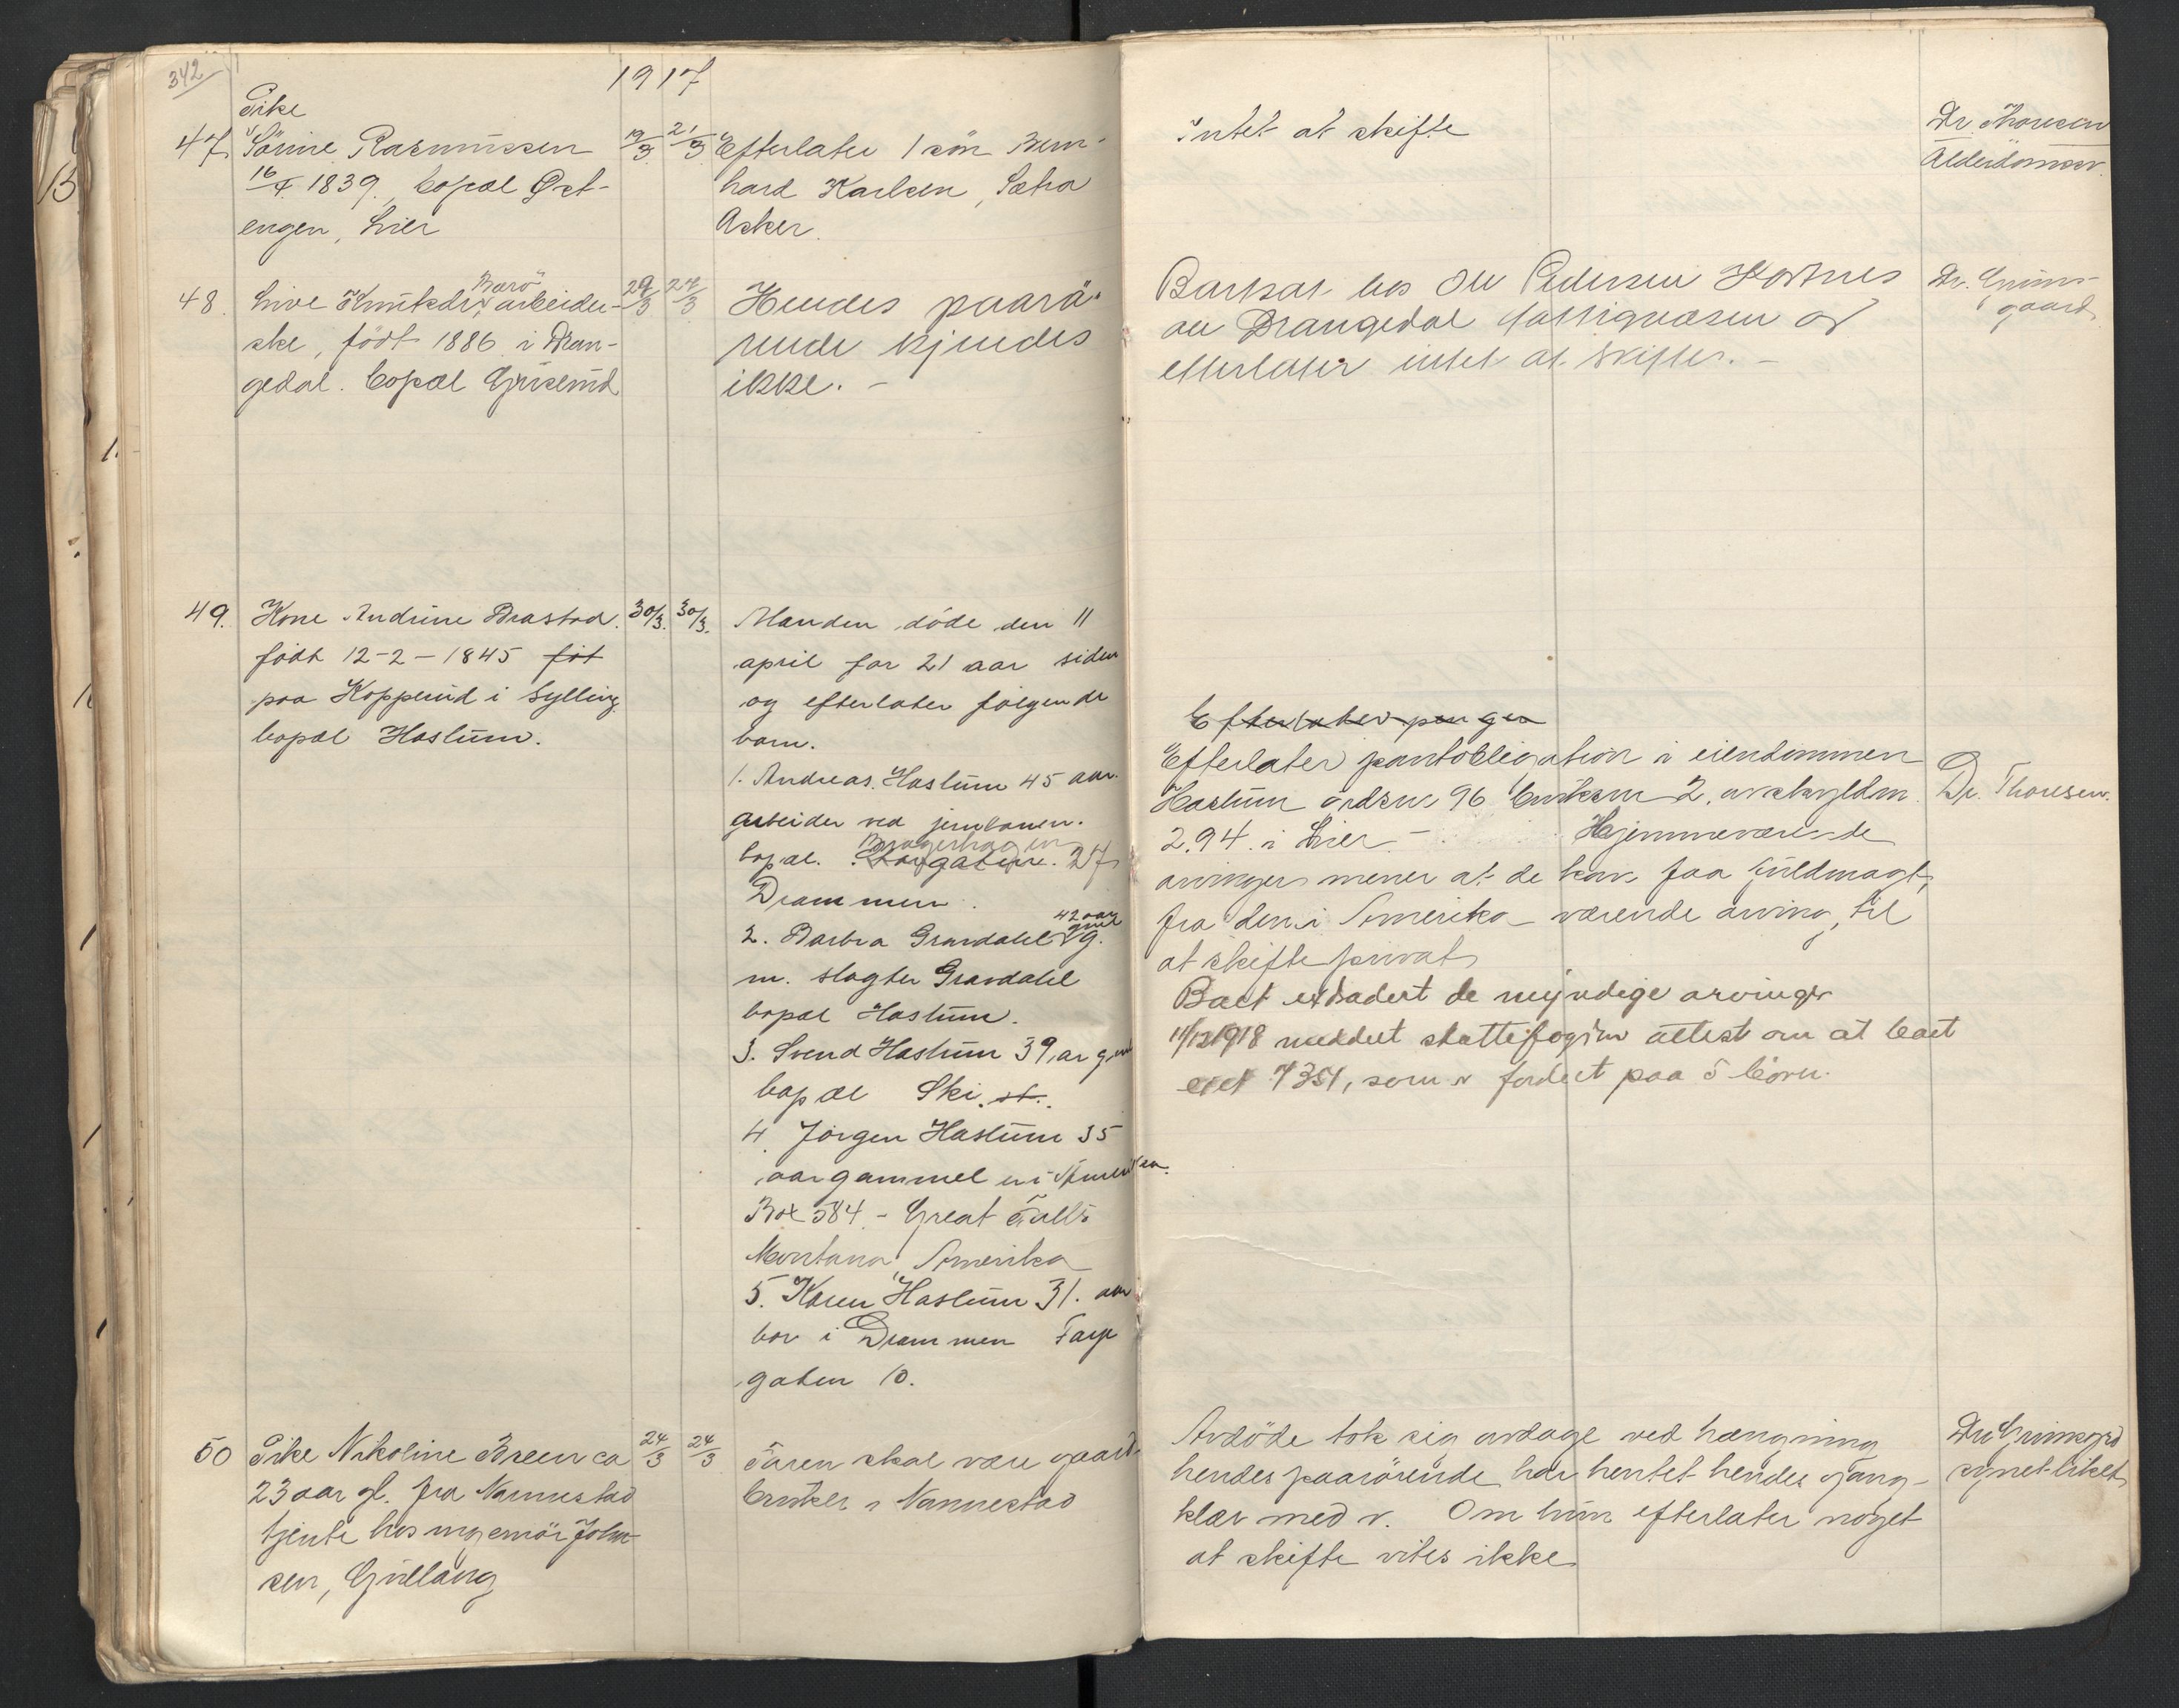 342
1917
47
Pike
Sörine Rasmussen
16/4 1839, bopæl Øst-
engen, Lier
19/3
21/3
Efterlater 1 sön Bern-
hard Karlsen, Sætra
Asker.
Intet at skifte
Dr. Thoresen
Alderdomssv.
48.
Live Knutsdr, Barö arbeider-
ske, födt 1886 i Dran-
gedal. bopæl Gruslund
29/3
29/3
Hendes paarö-
rende kjendes
ikke. -
hos Ole Pedersen
av Drangedal fattigvæsen og
efterlater intet at skifte. -
Dr. Grims-
gaard
49.
Kone Andrine Brastad.
födt 12-2-1845 föt
paa Kopperud i Sylling.
bopæl Haslum.
30/3.
30/3.
Manden döde den 11
april for 21 aar siden
og efterlater fölgende
barn.
1. Andreas Haslum 45 aar.
arbeider ved jernbanen.
bopæl. Storgatene. Bragerhagen 27
Drammen.
2. Barbra Gravdahl 42 aar gml g.
m. slagter Gravdahl
bopæl Haslum.
3. Svend Haslum 39 ar gml
bopæl Ski. st.
4. Jörgen Haslum 35
aar gammel er i Amerika.
Box 584 - Great Falls
Montana, Amerika
5. Karen Haslum 31. aar
bor i Drammen Farge
gaten 10.
Efterlater penger
Efterlater pantobligation i eiendommen
Haslum grdsnr 96 bruksnr 2, avskyldm.
2.94. i Lier - Hjemmeværende
arvinger mener at de kan faa fuldmagt,
fra den i Amerika værende arving, til
at skifte privat
Boet extradert de myndige arvinger
11/12 1918 meddelt skattefogden attest om at boet
eiet 7351, som er fordelt paa 5 börn.
Dr. Thoresen.
50
Pike Nikoline Breen ca
23 aar gl. fra Nannestad
tjente hos ingeniör John-
sen, Gullaug
24/3
24/3
Faren skal være gaard-
bruker i Nannestad
Avdöde tok sig avdage ved hængning
hendes paarörende har hentet hendes gang-
klær med v. Om hun efterlater noget
at skifte vites ikke
Dr Grimsgrd
synet liket